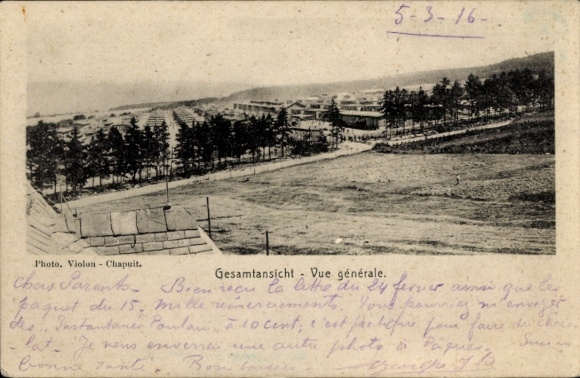 5-3-16-
Photo. Violon - Chapuit.
Gesamtansicht - Vue générale.
Chers Parents - Bien reçu la lettre du 24 février ainsi que le
paquet du 15, mille remerciements. Vous pourriez m'envoyer
des "Instantanés Poulain" à 10 cent, c'est pratique pour faire du choco
lat. Je vous enverrai une autre photo à Pâques. Suis en
bonne santé. Bons baisers -